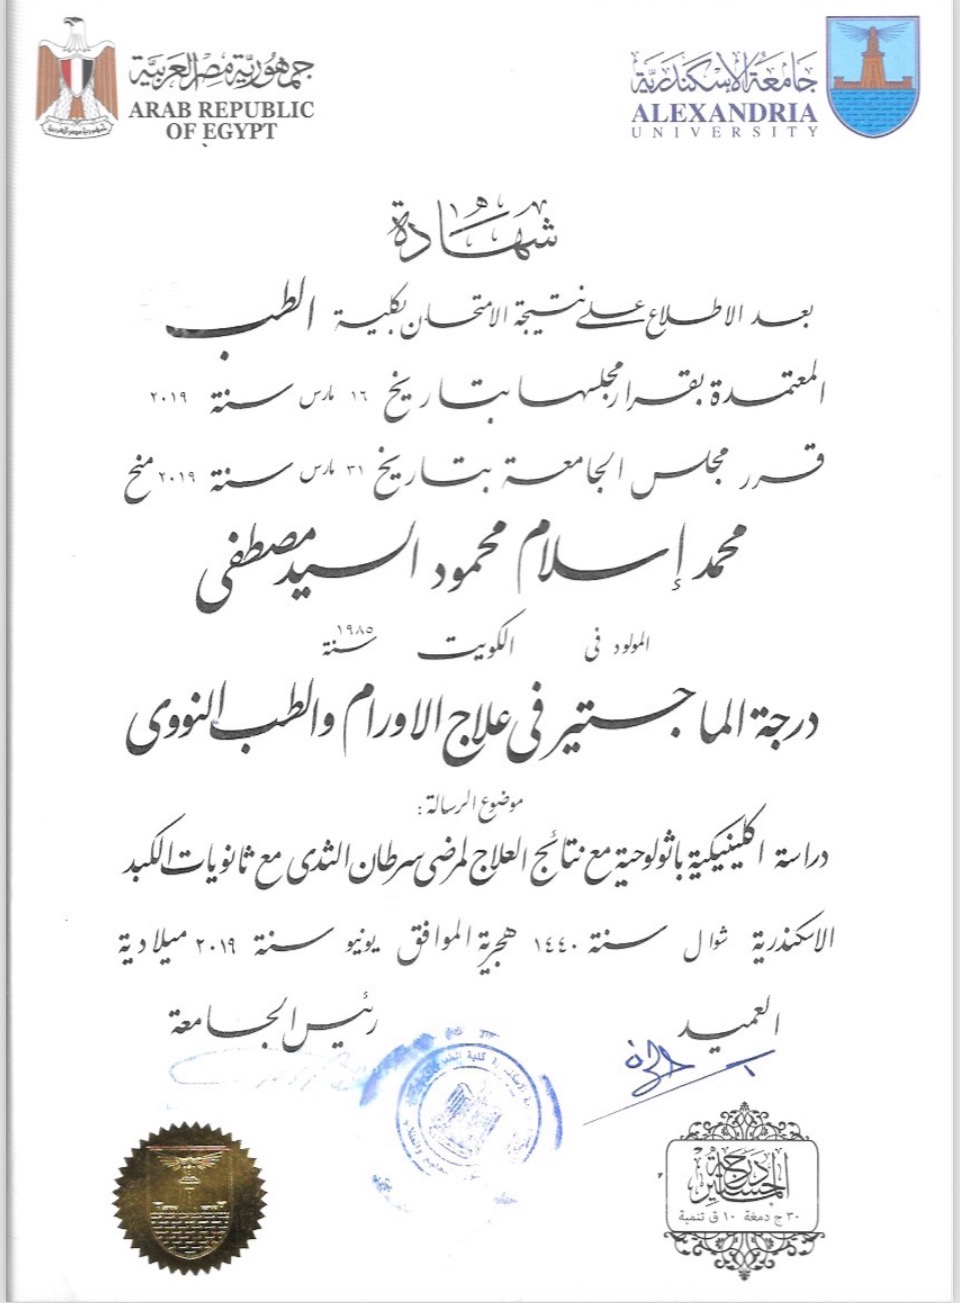 جمهورية مصر العربية
ARAB REPUBLIC
OF EGYPT
جامعة الإسكندرية
ALEXANDRIA
UNIVERSITY
شهادة
بعد الاطلاع على نتيجة الامتحان بكلية الطب
المعتمدة بقرار مجلسها بتاريخ ١٦ مارس سنة ٢٠١٩
قرر مجلس الجامعة بتاريخ ٣١ مارس سنة ٢٠١٩ منح
محمد إسلام محمود السيد مصطفى
المولود فى الكويت سنة ١٩٨٥
درجة الماجستير فى علاج الاورام والطب النووى
موضوع الرسالة:
دراسة اكلينيكية باثولوجية مع نتائج العلاج لمرضى سرطان الثدى مع ثانويات الكبد
الاسكندرية شوال سنة ١٤٤٠ هجرية الموافق يونيو سنة ٢٠١٩ ميلادية
العميد
رئيس الجامعة
درجة
الماجستير
٣٠ ج دمغة ١٠ ق تنمية